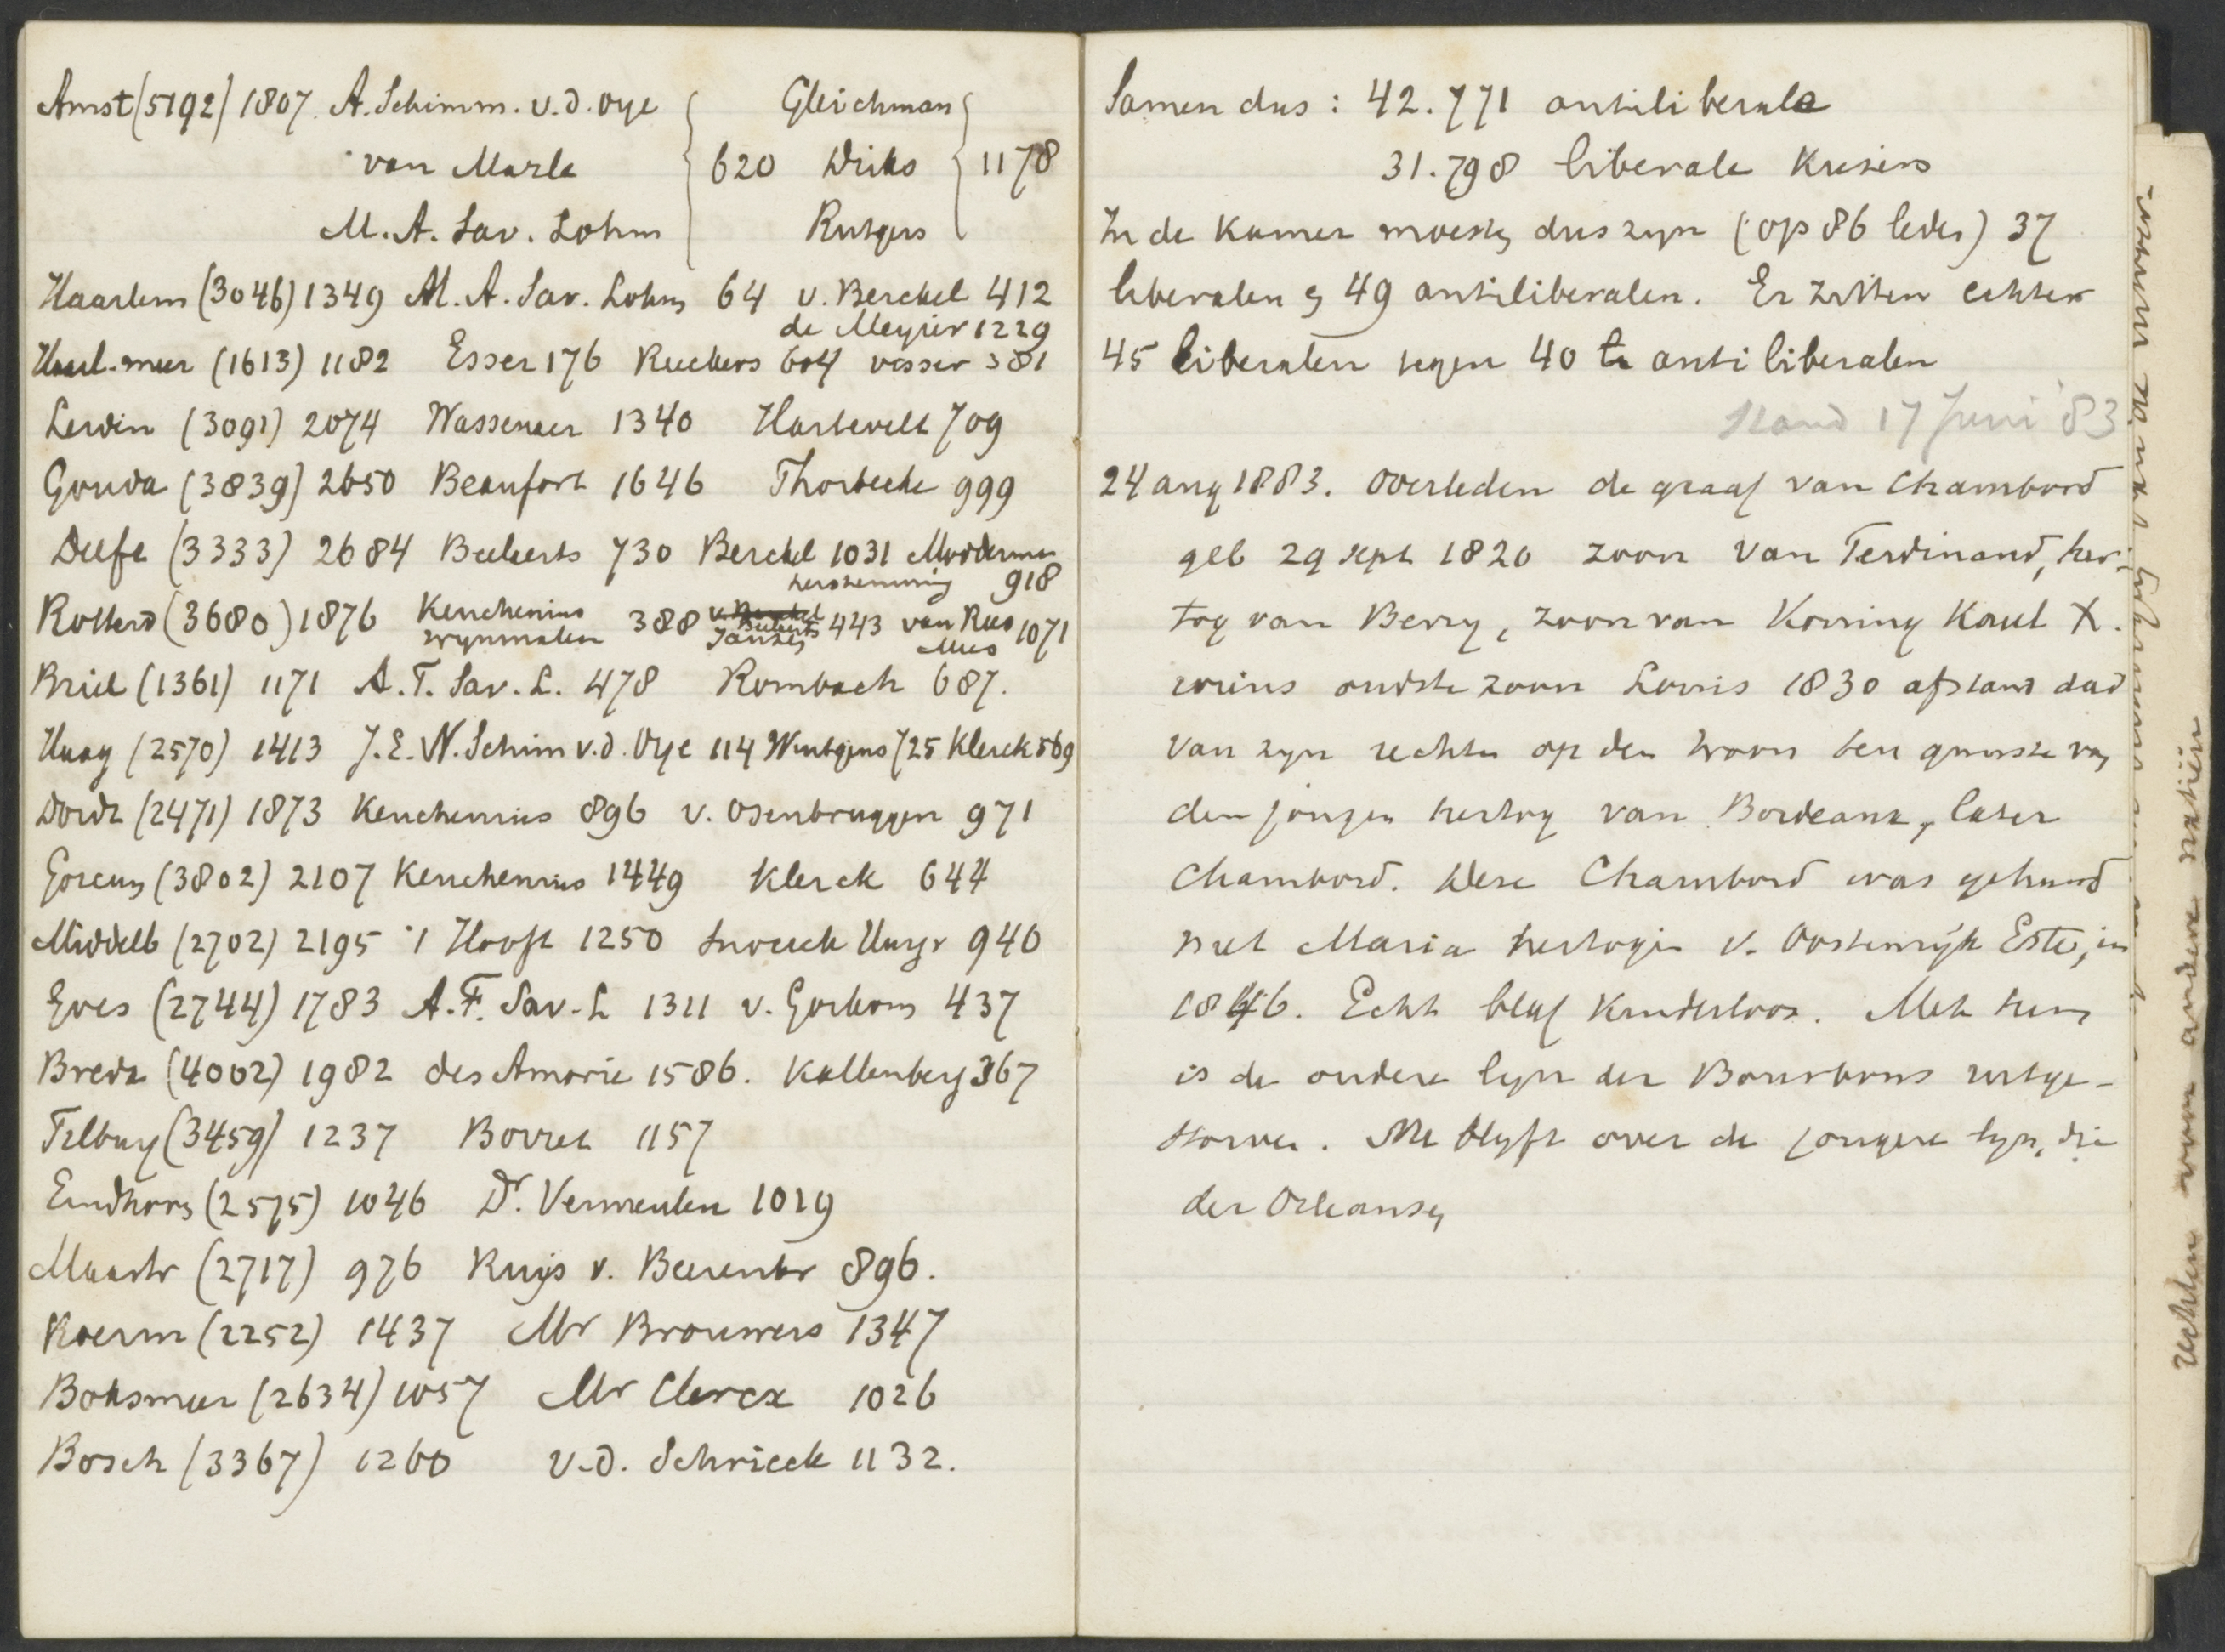 Amst (5192) 1807. A. Schimm. v. d. Oye { Gleichman {
van Marle { 620 Dirks { 1178
M. A. Sav. Lohm { Rutgers {
Haarlem (3046) 1349 M. A. Sav. Lohm 64 v. Berckel 412
de Meyier 1229
Haarl-meer (1613) 1182 Esser 176 Ruckers 604 Visser 381
Leiden (3091) 2074 Wassenaer 1340 Hartevelt 709
Gouda (3839) 2650 Beaufort 1646 Thorbecke 999
Delft (3333) 2684 Beelaerts 730 Berckel 1031 Modderman
herstemming 918
Rotterd (3680) 1876 Keuchenius 388 v. Berckel 443 van Rees 1071
Wynmalen Jansen Mees
Briel (1361) 1171 A. F. Sav. L. 478 Rombach 687.
Haag (2570) 1413 J. E. N. Schim v. d. Oye 114 Wintgens 725 Klerck 569
Dordr (2471) 1873 Keuchenius 896 v. Osenbruggen 971
Gorcum (3802) 2107 Keuchenius 1449 Klerck 644
Middelb (2702) 2195 't Hooft 1250 Snoeck Hurgr 940
Goes (2744) 1783 A. F. Sav. L 1311 v. Gorkom 437
Breda (4002) 1982 des Amorie 1586. Kallenberg 367
Tilburg (3459) 1237 Borret 1157
Eindhoven (2575) 1046 Dr. Vermeulen 1019
Maastr (2717) 976 Ruijs v. Beerenbr 896.
Roerm (2252) 1437 Mr Brouwers 1347
Boksmeer (2634) 1057 Mr Clercx 1026
Bosch (3367) 1260 v. d. Schrieck 1132.
Samen dus: 42.771 antiliberale
31.798 liberale kiezers
In de Kamer moesten dus zyn (op 86 leden) 37
liberalen en 49 antiliberalen. Er zitten echter
45 liberalen tegen 40 antiliberalen
Stand 17 Juni '83
24 aug 1883. Overleden de graaf van Chambord
geb 29 sept 1820 zoon van Ferdinand, her-
tog van Berry, zoon van Koning Karel X.
wiens oudste zoon Louis 1830 afstand deed
van zyn rechten op den troon ten gunste van
den jongen hertog van Bordeaux, later
Chambord. Deze Chambord was gehuwd
met Maria hertogin v. Oostenrijk Este, in
1846. Echt bleef kinderloos. Met hem
is de oudere lyn der Bourbons uitge-
storven. Nu blyft over de jongere lyn, die
der Orleansen
rechten voor andere natiën